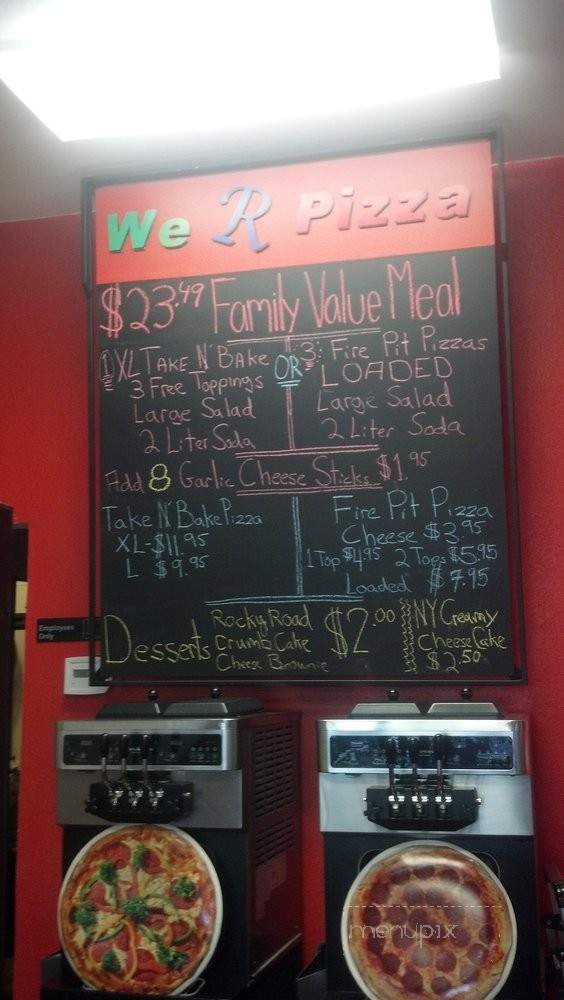 We R Pizza
$23.49 Family Value Meal
1 XL Take N' Bake
3 Free Toppings
Large Salad
2 Liter Soda
OR
3 Fire Pit Pizzas
LOADED
Large Salad
2 Liter Soda
Add 8 Garlic Cheese Sticks $1.95
Take N' Bake Pizza
XL-$11.95
L $9.95
Fire Pit Pizza
Cheese $3.95
1 Top $4.95 2 Tops $5.95
Loaded $7.95
Desserts
Rocky Road
Crumb Cake
Cheese Brownie
$2.00
NY Creamy
Cheese Cake
$2.50
Employees
Only
menupix